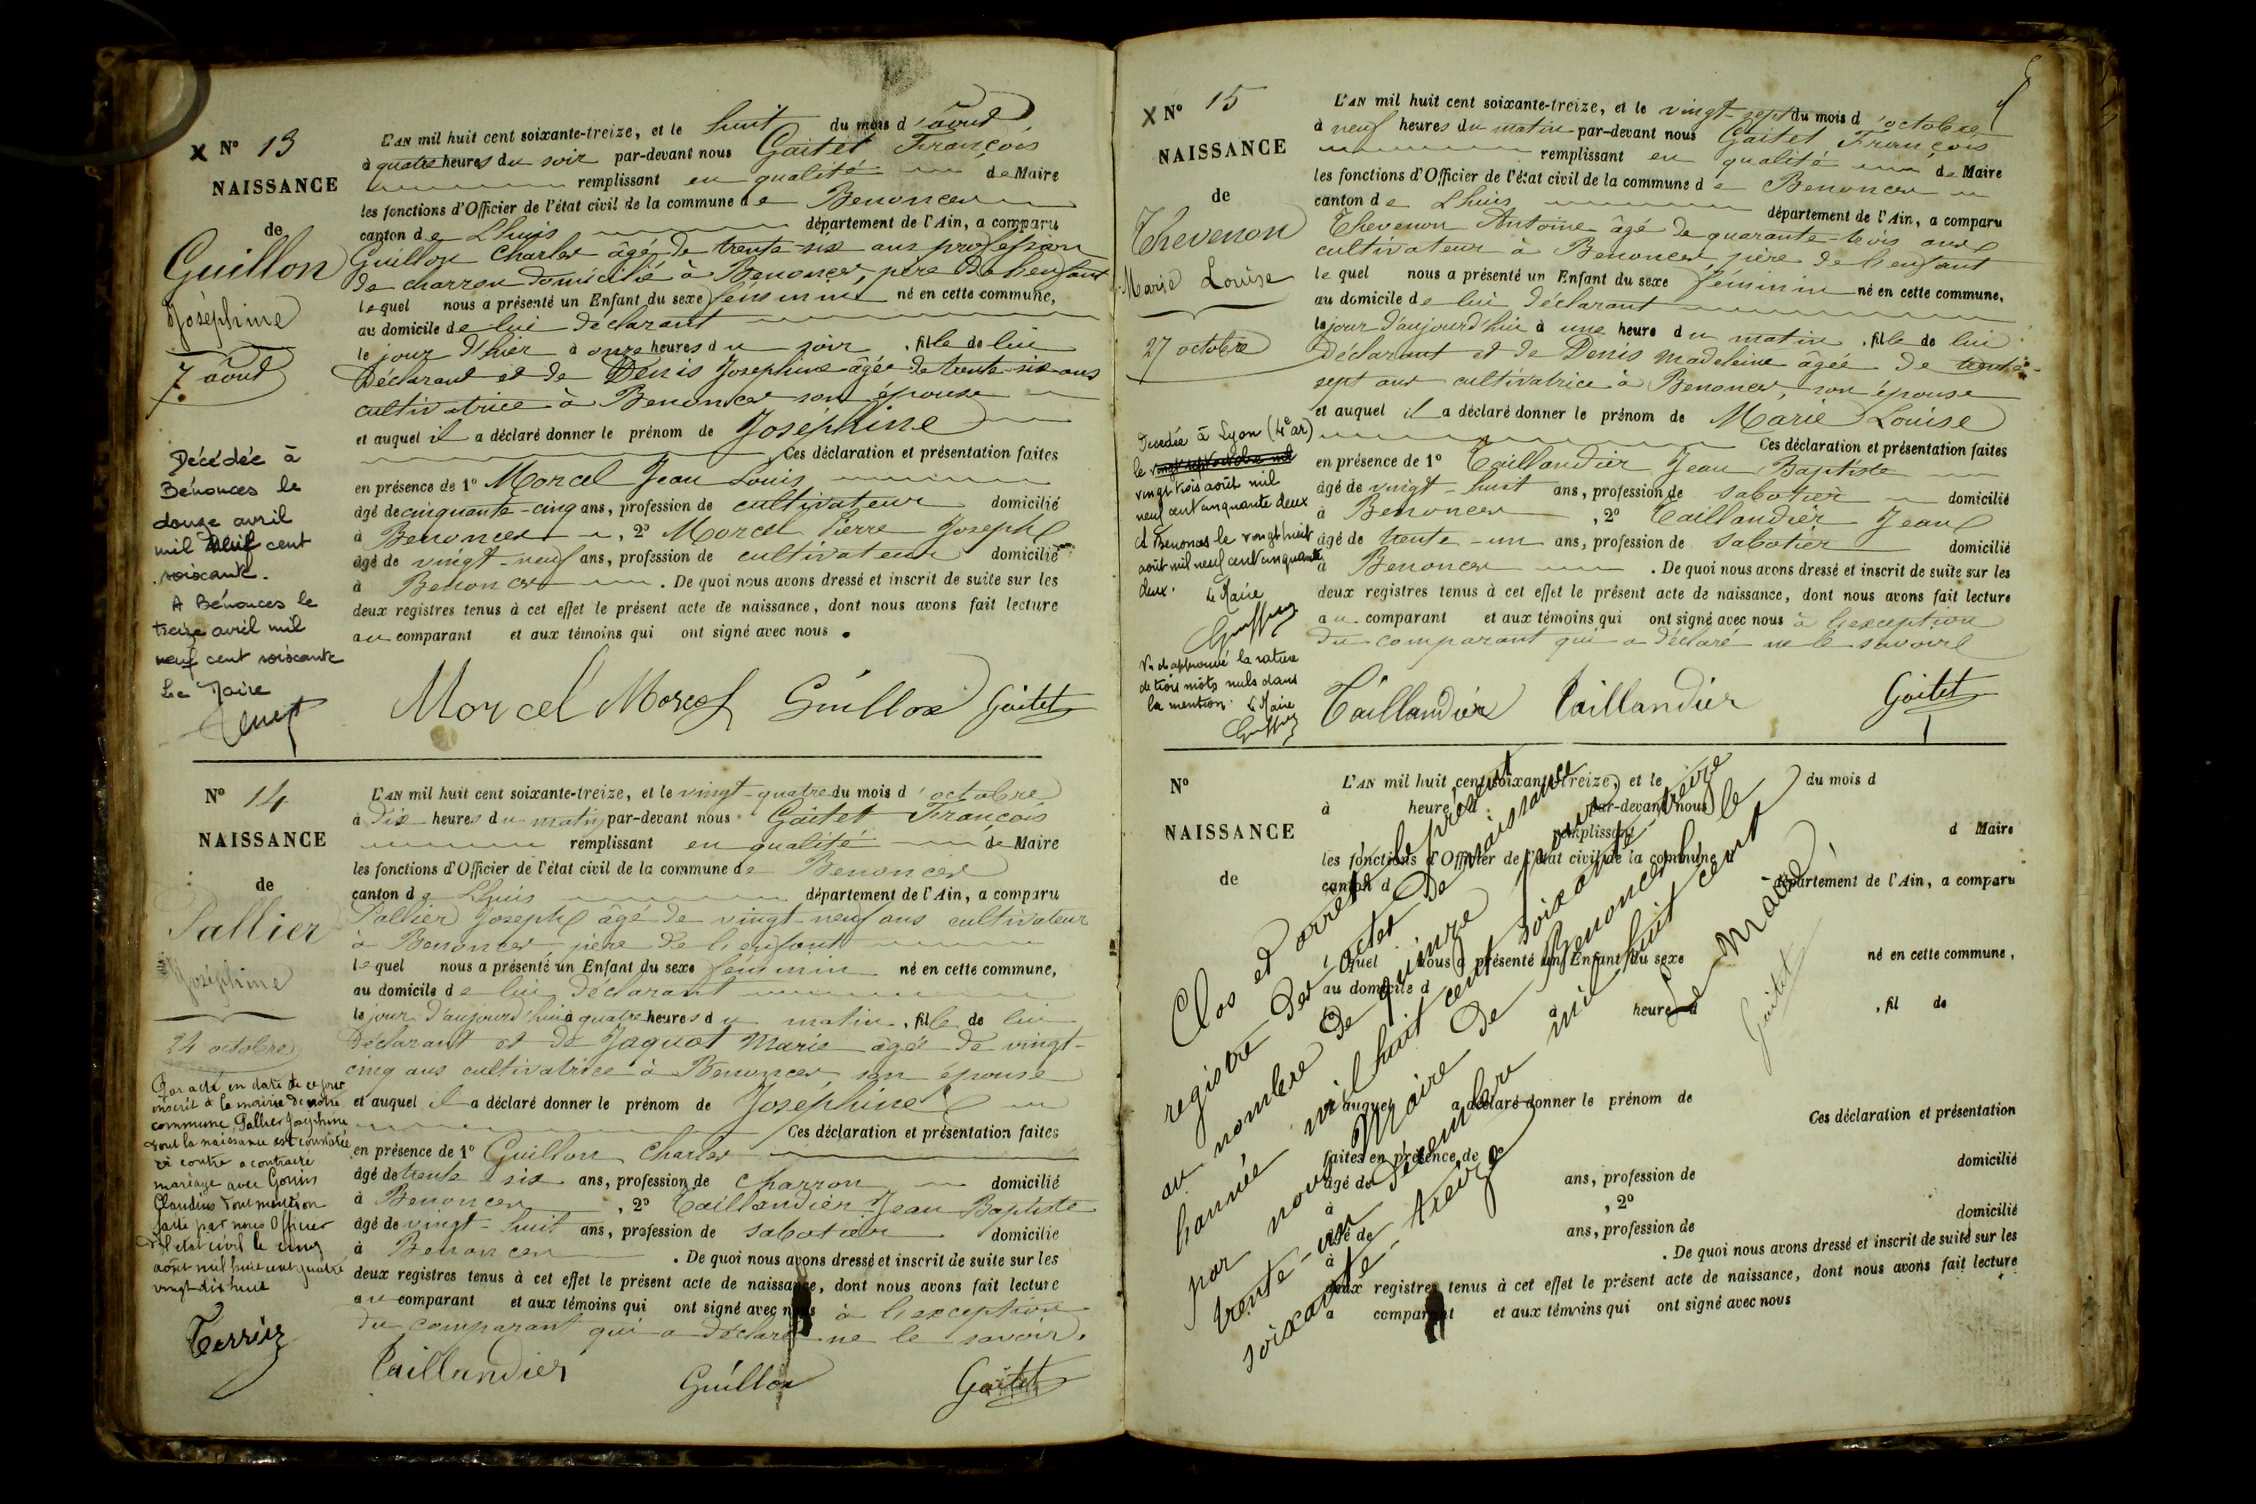 X N° 13
NAISSANCE
de
Guillon
Joséphine
7 août
Décédée à
Bénonces le
douze avril
mil neuf cent
soixante.
A Bénonces le
treize avril mil
neuf cent soixante
Le Maire
L'AN mil huit cent soixante-treize, et le huit du mois d'août
à quatre heures du soir par-devant nous Gaitet François
remplissant en qualité de Maire
les fonctions d'Officier de l'état civil de la commune de Benonces
canton de Lhuis département de l'Ain, a comparu
Guillon Charles âgé de trente-six ans profession
de charron domicilié à Benonces, père de l'enfant
lequel nous a présenté un Enfant du sexe féminin né en cette commune,
au domicile de lui déclarant
le jour d'hier à onze heures du soir, fille de lui
Déclarant et de Denis Josephine âgée de trente-six ans
cultivatrice à Benonces son épouse
et auquel il a déclaré donner le prénom de Joséphine
Ces déclaration et présentation faites
en présence de 1° Morcel Jean Louis
âgé de cinquante-cinq ans, profession de cultivateur domicilié
à Benonces, 2° Morcel Pierre Joseph
âgé de vingt-neuf ans, profession de cultivateur domicilié
à Benonces. De quoi nous avons dressé et inscrit de suite sur les
deux registres tenus à cet effet le présent acte de naissance, dont nous avons fait lecture
au comparant et aux témoins qui ont signé avec nous.
Morcel Morcel Guillon Gaitet
N° 14
NAISSANCE
de
Pallier
Joséphine
24 octobre
Par acte en date de ce jour
inscrit à la mairie de notre
commune, Pallier Joséphine
dont la naissance est constatée
ci contre a contracté
mariage avec Gonin
Claudius dont mention
faite par nous Officier
de l'état civil le cinq
août mil huit cent quatre
vingt dix huit
Terrier
L'AN mil huit cent soixante-treize, et le vingt-quatre du mois d'octobre
à dix heures du matin par-devant nous Gaitet François
remplissant en qualité de Maire
les fonctions d'Officier de l'état civil de la commune de Benonces
canton de Lhuis département de l'Ain, a comparu
Pallier Joseph âgé de vingt-neuf ans cultivateur
à Benonces père de l'enfant
lequel nous a présenté un Enfant du sexe féminin né en cette commune,
au domicile de lui déclarant
le jour d'aujourd'hui à quatre heures du matin, fille de lui
Déclarant et de Jaquot Marie âgée de vingt-
cinq ans cultivatrice à Benonces, son épouse
et auquel il a déclaré donner le prénom de Joséphine
Ces déclaration et présentation faites
en présence de 1° Guillon Charles
âgé de trente six ans, profession de charron domicilié
à Benonces, 2° Taillandier Jean Baptiste
âgé de vingt-huit ans, profession de sabotier domicilié
à Benonces. De quoi nous avons dressé et inscrit de suite sur les
deux registres tenus à cet effet le présent acte de naissance, dont nous avons fait lecture
au comparant et aux témoins qui ont signé avec nous à l'exception
du comparant qui a déclaré ne le savoir.
Taillandier Guillon Gaitet
X N° 15
NAISSANCE
de
Thevenon
Marie Louise
27 octobre
Décédée à Lyon (4e ar)
le vingt sept octobre mil
vingt trois août mil
neuf cent cinquante deux
A Benonces le vingt huit
août mil neuf cent cinquante
deux.
Le Maire
Vu et approuvé la rature
de trois mots nuls dans
la mention. Le Maire
L'AN mil huit cent soixante-treize, et le vingt-sept du mois d'octobre
à neuf heures du matin par-devant nous Gaitet François
remplissant en qualité de Maire
les fonctions d'Officier de l'état civil de la commune de Benonces
canton de Lhuis département de l'Ain, a comparu
Thevenon Antoine âgé de quarante-trois ans
cultivateur à Benonces, père de l'enfant
lequel nous a présenté un Enfant du sexe féminin né en cette commune,
au domicile de lui déclarant
le jour d'aujourd'hui à une heure du matin, fille de lui
Déclarant et de Denis Madeleine âgée de trente-
sept ans cultivatrice à Benonces, son épouse
et auquel il a déclaré donner le prénom de Marie Louise
Ces déclaration et présentation faites
en présence de 1° Taillandier Jean Baptiste
âgé de vingt-huit ans, profession de sabotier domicilié
à Benonces, 2° Taillandier Jean
âgé de trente-un ans, profession de sabotier domicilié
à Benonces. De quoi nous avons dressé et inscrit de suite sur les
deux registres tenus à cet effet le présent acte de naissance, dont nous avons fait lecture
au comparant et aux témoins qui ont signé avec nous à l'exception
du comparant qui a déclaré ne le savoir
Taillandier Taillandier Gaitet
N°
NAISSANCE
de
L'AN mil huit cent soixante-treize, et le du mois d
à heure d par-devant nous
remplissant d Maire
les fonctions d'Officier de l'état civil de la commune d
canton d département de l'Ain, a comparu
l quel nous a présenté un Enfant du sexe né en cette commune,
au domicile d
le à heure d, fil de
et auquel a déclaré donner le prénom de
Ces déclaration et présentation
faites en présence de
âgé de ans, profession de domicilié
à, 2°
âgé de ans, profession de domicilié
à. De quoi nous avons dressé et inscrit de suite sur les
deux registres tenus à cet effet le présent acte de naissance, dont nous avons fait lecture
a comparant et aux témoins qui ont signé avec nous
Clos et arrêté le présent
registre des actes de naissance
au nombre de quinze pour
l'année mil huit cent soixante-treize
par nous Maire de Benonces le
trente-un décembre mil huit cent
soixante-treize
Le Maire
Gaitet